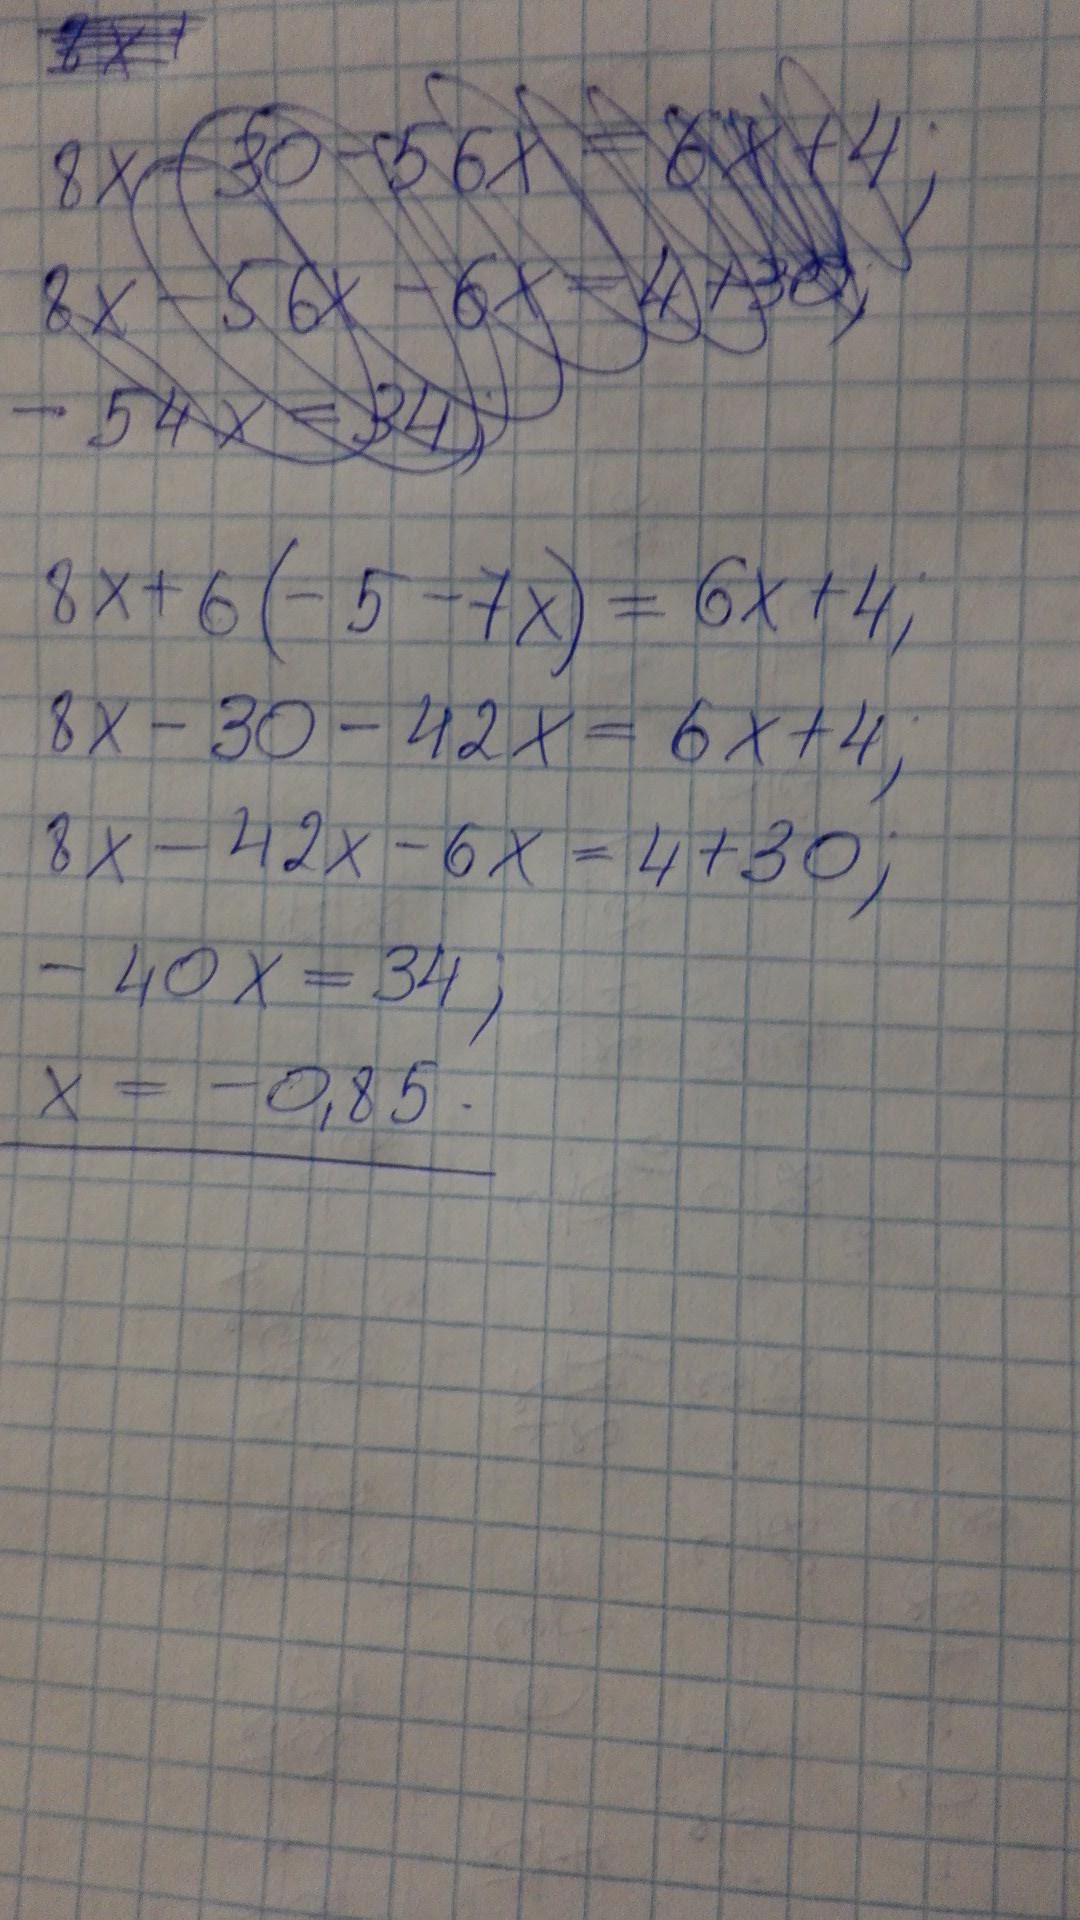 8x - 30 - 56x = 6x + 4;
8x - 56x - 6x = 4 + 30;
- 54x = 34;
8x + 6(-5 - 7x) = 6x + 4;
8x - 30 - 42x = 6x + 4;
8x - 42x - 6x = 4 + 30;
- 40x = 34;
x = -0,85.